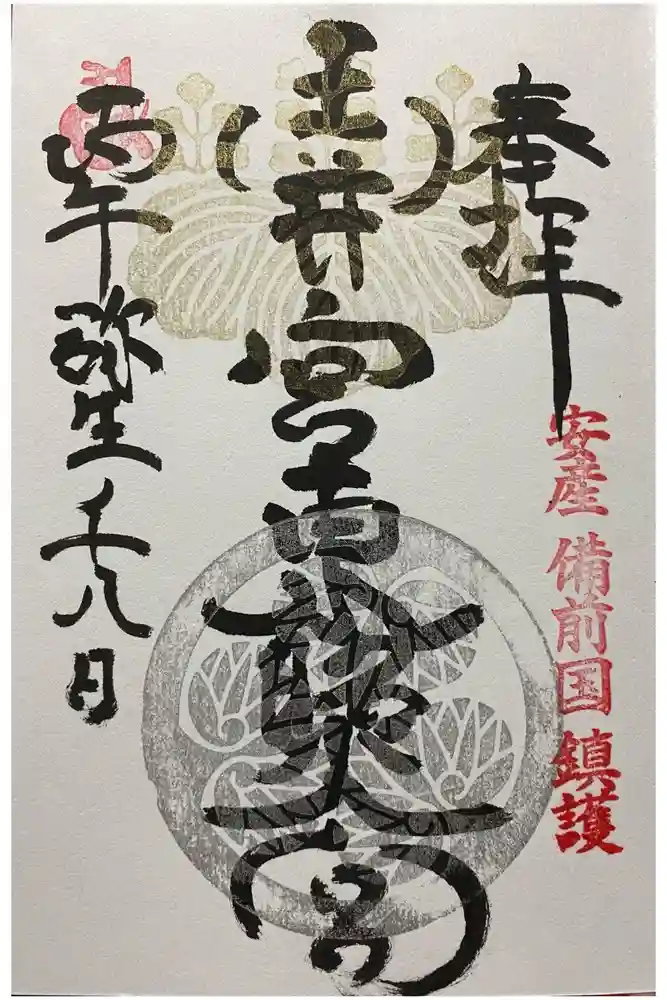 奉拝
安産 備前国 鎮護
玉井宮東照宮
丙午弥生八日